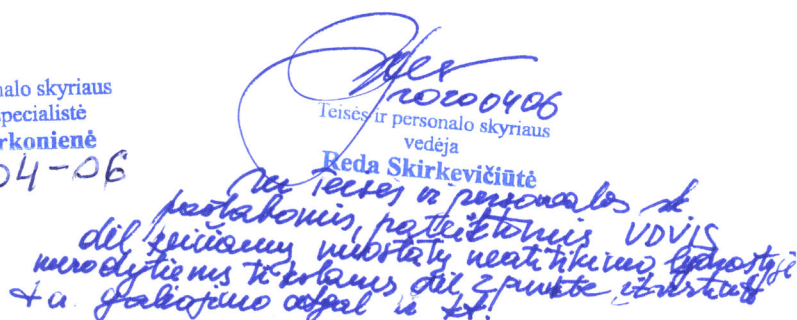 nalo skyriaus
specialistė
rkonienė
04-06
20200406
Teisės ir personalo skyriaus
vedėja
Reda Skirkevičiūtė
su Teisės ir personalo sk
pastabomis, pateiktomis VDVIS
dėl keičiamų nuostatų neatitikimo
nurodytiems tikslams dėl 2 punkto
galiojimo atgal ir kt.